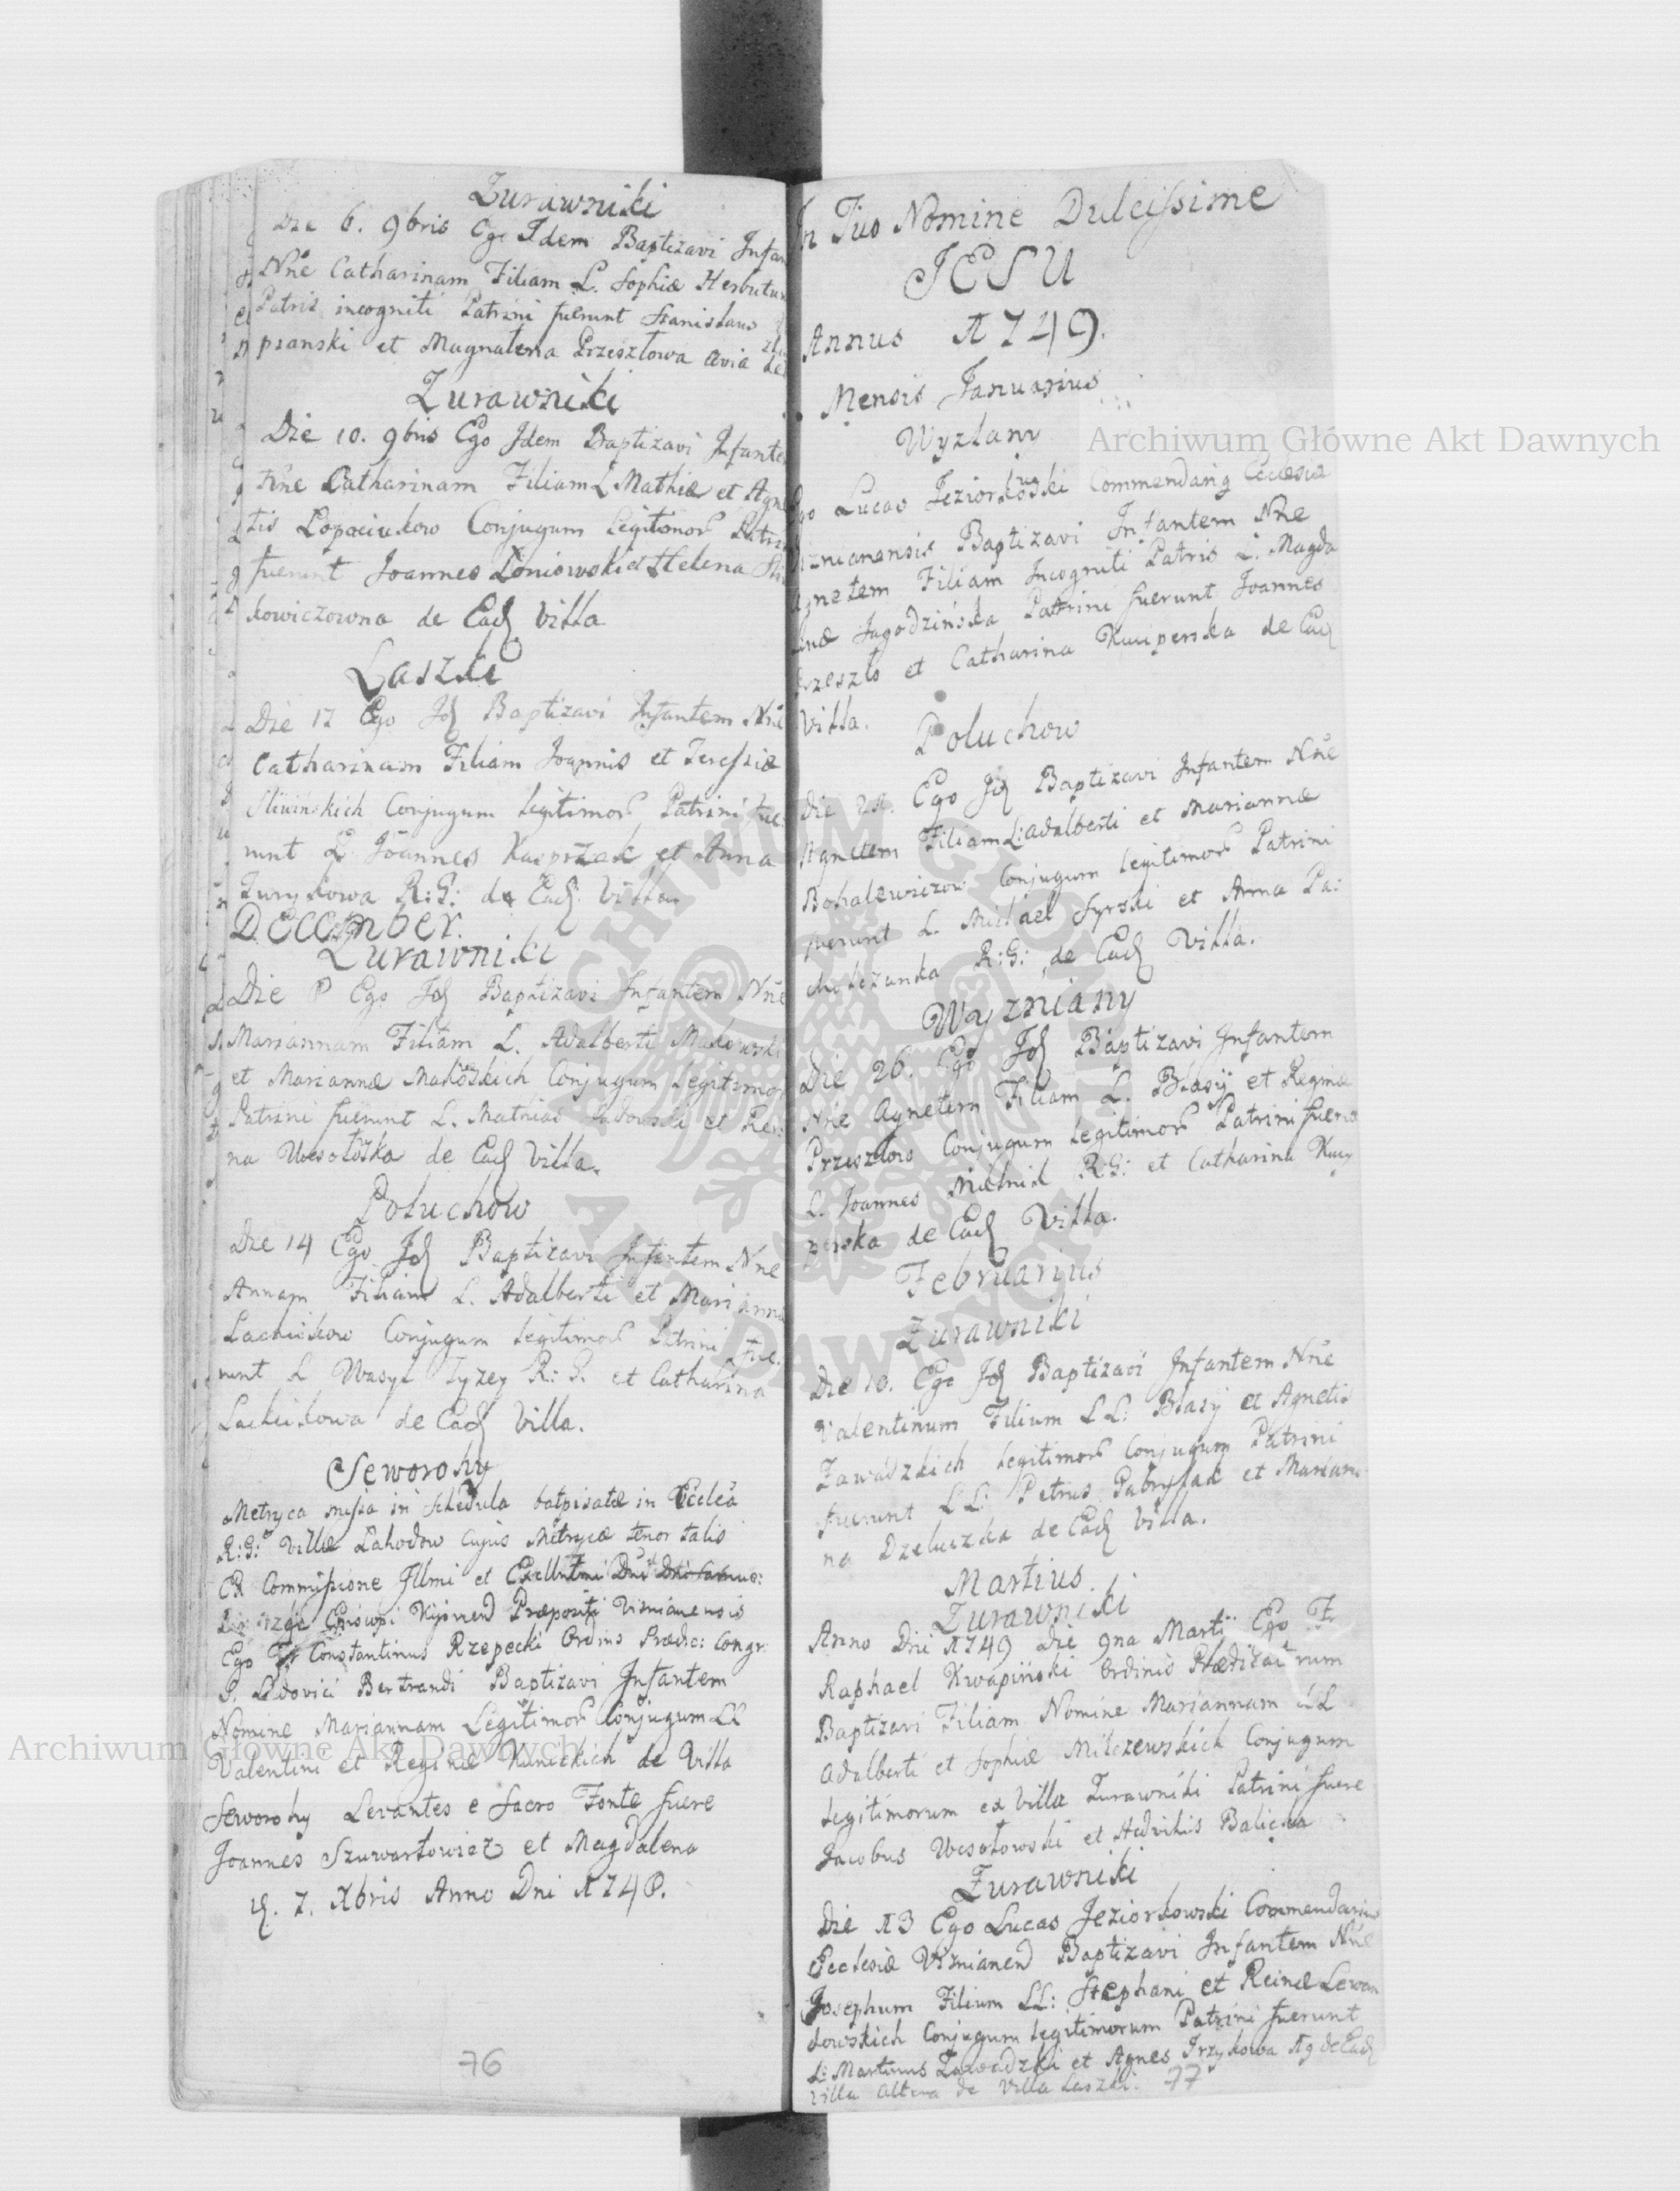 Zurawniki
Die 6. 9bris Ego Idem Baptizavi Infan
Nne Catharinam Filiam L. Sophiæ Herbutu
Patris incogniti Patrini fuerunt Stanislaus
pianski et Magnalena Przeszłowa avia de
Zurawniki
Die 10. 9bris Ego Idem Baptizavi Infante
Nne Catharinam Filiam L Mathiæ et Agne
tis Lopaciukow Conjugum Legitimor Patri
fuerunt Joannes Loniowski et Helena
kowiczowna de Ead Villa
Laszki
Die 17 Ego Id Baptizavi Infantem Nne
Catharinam Filiam Joannis et Teressiæ
Sliwinskich Conjugum legitimor Patrini fue:
runt L Joannes Kasprzak et Anna
Jurykowa R:G: de Ead Villa
December.
Zurawniki
Die 8 Ego Id Baptizavi Infantem Nne
Mariannam Filiam L. Adalberti
et Mariannæ Conjugum Legitimor
Patrini fuerunt L. Mathias et Re:
na Wesołoska de Ead Villa.
Poluchow
Die 14 Ego Id Baptizavi Infantem Nne
Annam Filiam L. Adalberti et Marianna
Lachickow Conjugum legitimor Patrini fue.
runt L Wasyl Tyzey R: G. et Catharina
Lachickowa de Ead Villa.
Seworohy
Metryca missa in Schedula batpisatæ in Ecclea
R:G: Villæ Lahodow cujus Metrycæ tenor talis
Ex Commissione Illmi et Excllntmi Dni
Kijoviens Præpositi Visnianensis
Ego Fr Constantinus Rzepecki Ordinis Prædic: Congr.
S. Ludovici Bertrandi Baptizavi Infantem
Nomine Mariannam Legitimor Conjugum LL
Valentini et Reginæ Kunickich de Villa
Seworohy Levantes e Sacro Fonte fuere
Joannes Szuwartowicz et Magdalena
d. 7. Xbris Anno Dni 1748.
76
In Tuo Nomine Dulcissime
JESU
Annus 1749.
Mensis Januarius
Wyzlany
Ego Lucas Jeziorkowski Commendarig Ecclesiæ
Visnianensis Baptizavi Infantem Nne
Agnetem Filiam Incogniti Patris L. Magda
lenæ Jagodzińska Patrini fuerunt Joannes
Przeszło et Catharina Kucperska de Ead
Villa.
Poluchow
Die Ego Id Baptizavi Infantem Nne
Agnetem Filiam L: Adalberti et Mariannæ
Bohalewiczow Conjugum legitimor Patrini
fuerunt L. Michael Syrski et Anna Pa:
R:G: de Ead Villa.
Wyzniany
Die 26. Ego Id Baptizavi Infantem
Nne Agnetem Filiam L. Blasij et Reginæ
Przeszłow Conjugum legitimor Patrini fueru
L. Joannes Mielnik R:G: et Catharina Kucy
perska de Ead Villa.
Februarius
Zurawniki
Die 10. Ego Id Baptizavi Infantem Nne
Valentinum Filium LL: Blasij et Agnetis
Zawadzkich legitimor Conjugum Patrini
fuerunt LL: Petrus Pabrysiak et Marian
na Dzeluszka de Ead Villa.
Martius.
Zurawniki
Anno Dni 1749 Die 9na Martij Ego Fr
Raphael Kwapiński Ordinis Prædicatorum
Baptizavi Filiam Nomine Mariannam LL
Adalberti et Sophiæ Milczewskich Conjugum
legitimorum ex Villa Zurawniki Patrini fuere
Jacobus Wesołowski et Hedvikis Balicka
Zurawniki
Die 13 Ego Lucas Jeziorkowski Commendarius
Ecclesiæ Visnianens Baptizavi Infantem Nne
Josephum Filium LL: Stephani et Reinæ Lewan
dowskich Conjugum legitimorum Patrini fuerunt
L: Martinus Zawadzki et Agnes Irzykowa de Ead
Villa altera de Villa Laszki.
77
Archiwum Główne Akt Dawnych
Archiwum Główne Akt Dawnych
ARCHIWUM GŁÓWNE AKT DAWNYCH